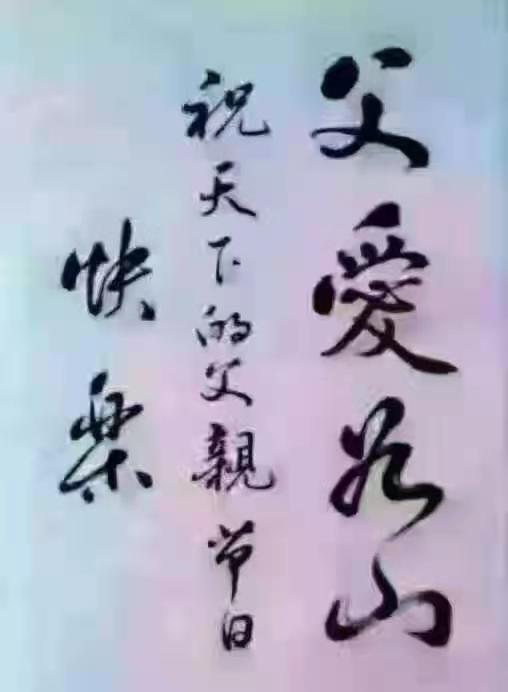 父愛如山
祝天下的父親节日
快樂